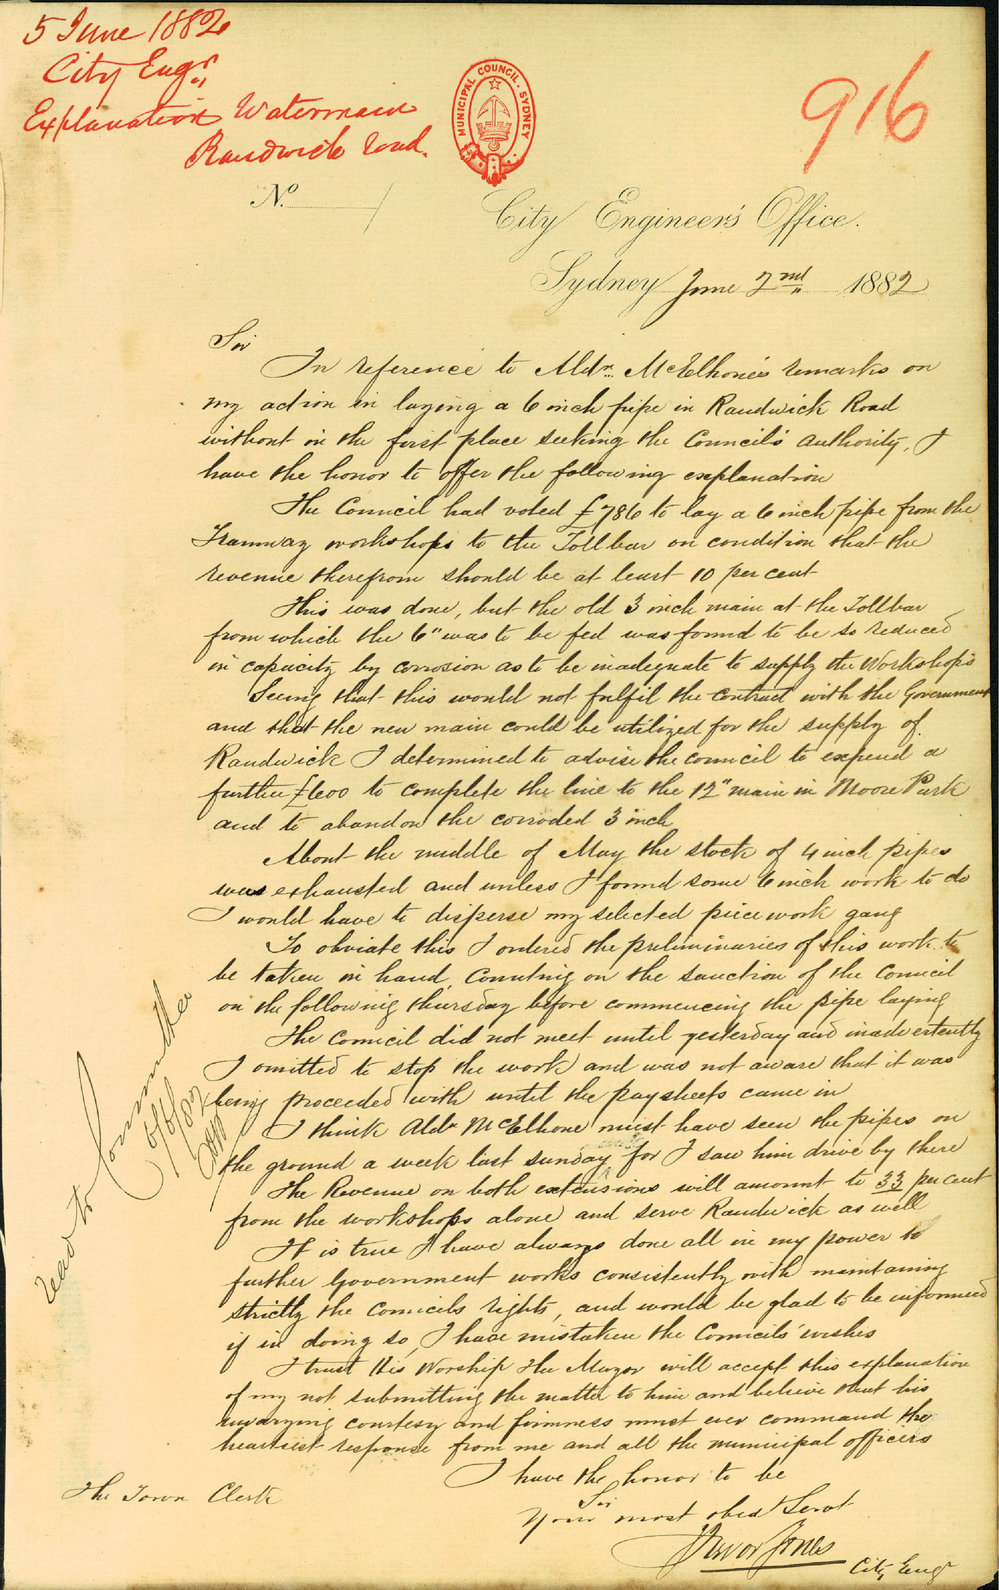 5 June 1882
City Engr.
Explanation Watermain
Randwick Road.
916
MUNICIPAL COUNCIL. SYDNEY
No.
City Engineer's Office.
Sydney June 2nd 1882
Sir
In reference to Aldn. McElhone's remarks on
my action in laying a 6 inch pipe in Randwick Road
without in the first place seeking the Council's authority, I
have the honor to offer the following explanation
The Council had voted £786 to lay a 6 inch pipe from the
Tramway workshops to the Tollbar on condition that the
revenue therefrom should be at least 10 per cent
This was done, but the old 3 inch main at the Tollbar
from which the 6" was to be fed was found to be so reduced
in capacity by corrosion as to be inadequate to supply the Workshops
Seeing that this would not fulfil the contract with the Government
and that the new main could be utilized for the supply of
Randwick I determined to advise the council to expend a
further £600 to complete the line to the 12" main in Moore Park
and to abandon the corroded 3 inch
About the middle of May the stock of 4 inch pipes
was exhausted and unless I found some 6 inch work to do
I would have to disperse my selected piece work gang
To obviate this I ordered the preliminaries of this work to
be taken in hand, counting on the sanction of the Council
on the following thursday before commencing the pipe laying
The Council did not meet until yesterday and inadvertently
I omitted to stop the work and was not aware that it was
being proceeded with until the paysheets came in
I think Aldn McElhone must have seen the pipes on
the ground a week last sunday for I saw him drive by there
The Revenue on both extensions will amount to 33 per cent
from the workshops alone and serve Randwick as well
It is true I have always done all in my power to
further Government works consistently with maintaining
strictly the Councils rights, and would be glad to be informed
if in doing so, I have mistaken the Councils' wishes
I trust His Worship the Mayor will accept this explanation
of my not submitting the matter to him and believe that his
unvarying courtesy and firmness must ever command the
heartiest response from me and all the municipal officers
I have the honor to be
Sir
Your most obedt Servt
Trevor Jones
City Engr
The Town Clerk
read to Committee
6/6/82